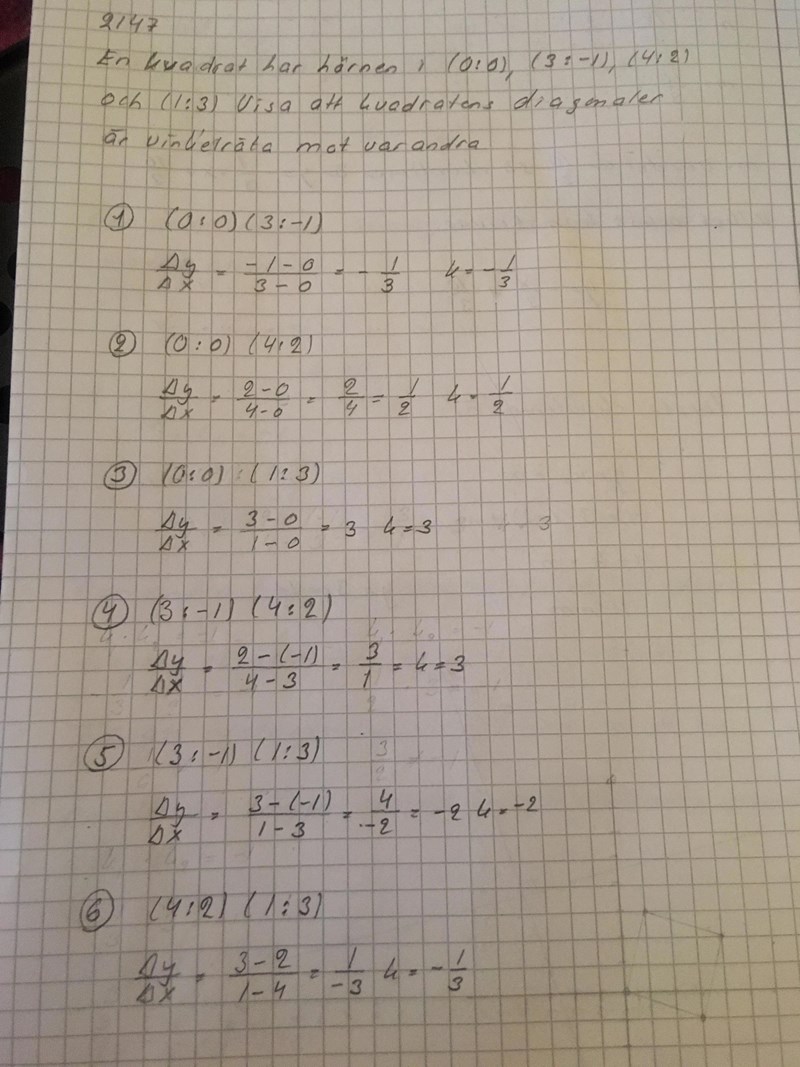 2147
En kvadrat har hörnen i (0:0), (3:-1), (4:2)
och (1:3) Visa att kvadratens diagonaler
är vinkelräta mot varandra
① (0:0) (3:-1)
Δy/Δx = (-1-0)/(3-0) = -1/3 k = -1/3
② (0:0) (4:2)
Δy/Δx = (2-0)/(4-0) = 2/4 = 1/2 k = 1/2
③ (0:0) (1:3)
Δy/Δx = (3-0)/(1-0) = 3 k = 3
④ (3:-1) (4:2)
Δy/Δx = (2-(-1))/(4-3) = 3/1 = k = 3
⑤ (3:-1) (1:3)
Δy/Δx = (3-(-1))/(1-3) = 4/-2 = -2 k = -2
⑥ (4:2) (1:3)
Δy/Δx = (3-2)/(1-4) = 1/-3 k = -1/3